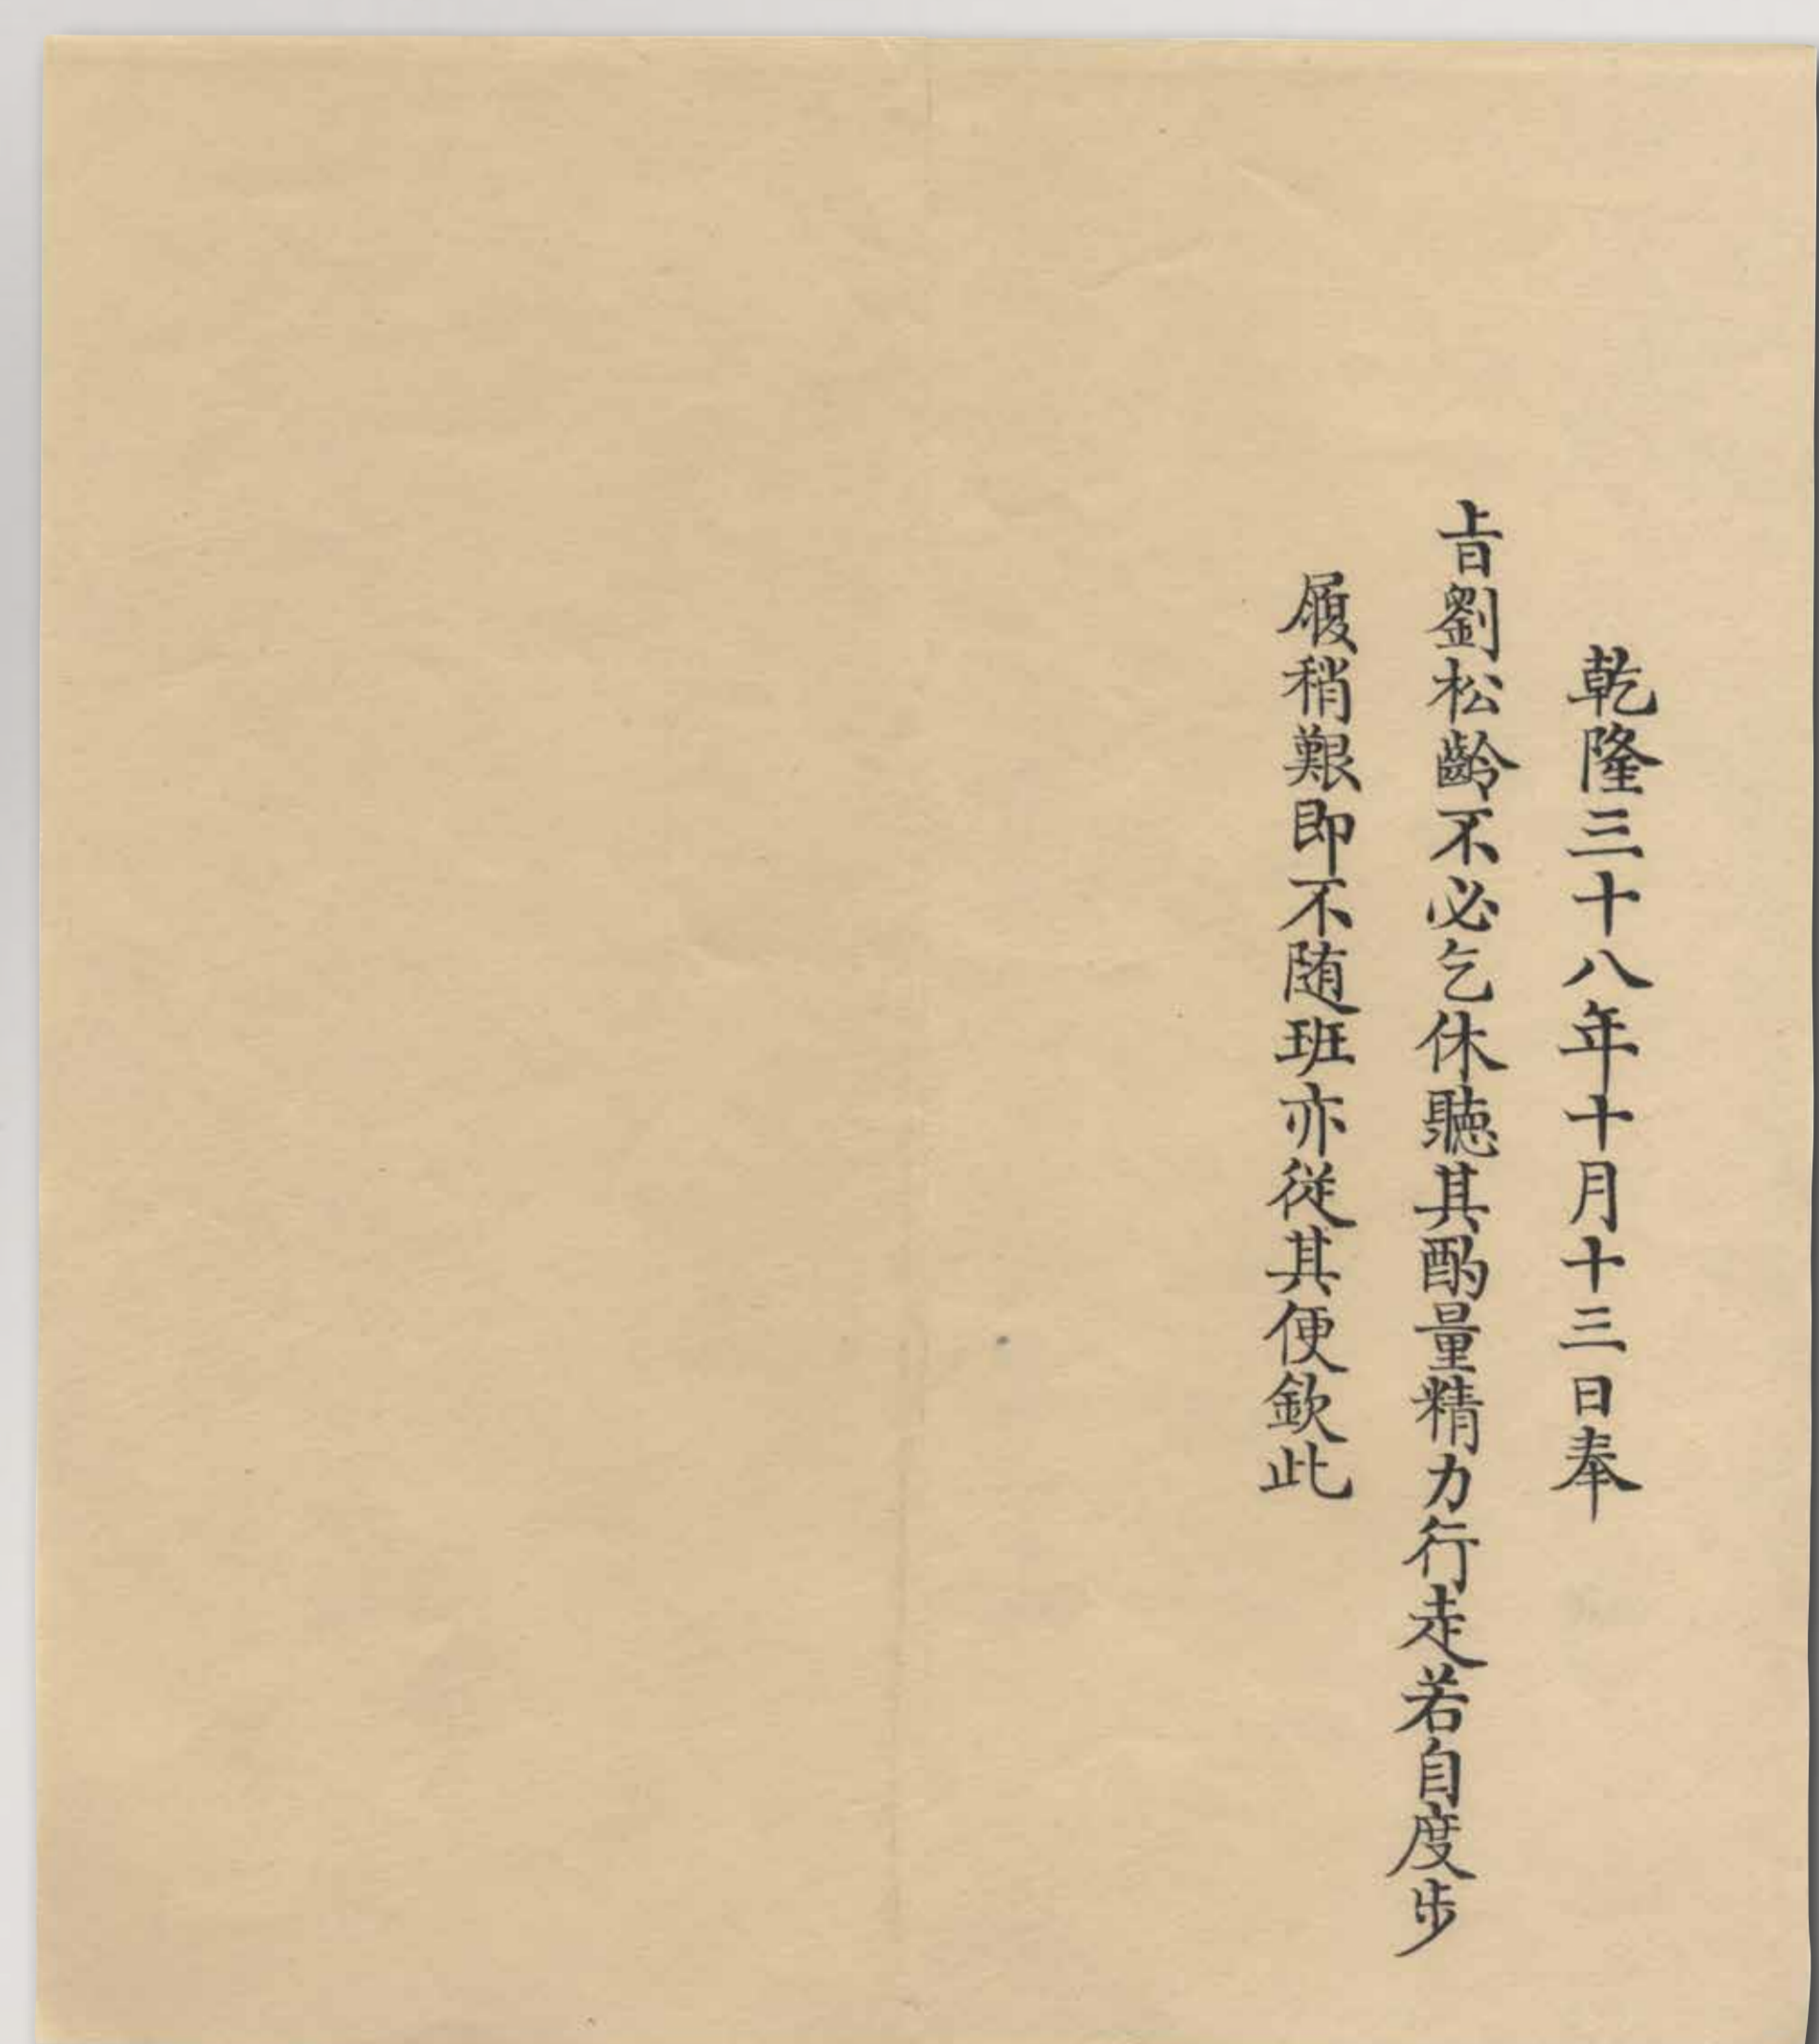 乾隆三十八年十月十三日奉
旨劉松齡不必乞休聽其酌量精力行走若自度步
履稍艱即不随班亦從其便欽此